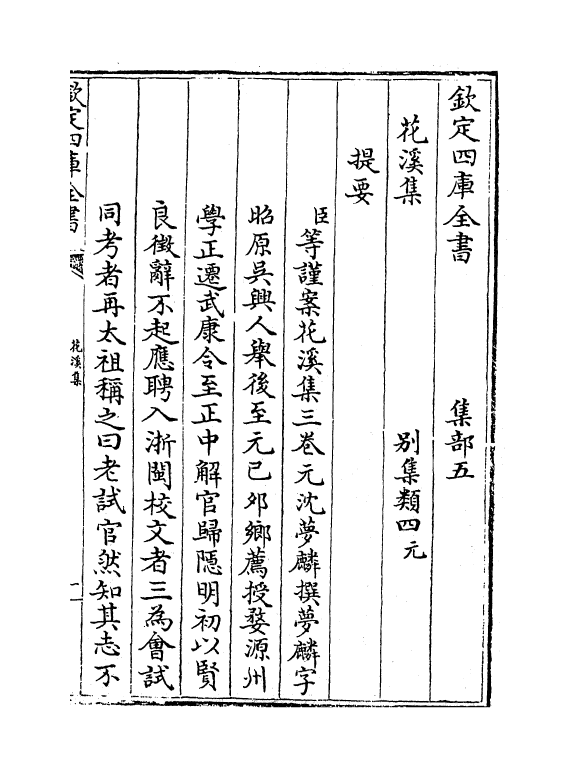 欽定四庫全書　　　　集部五
花溪集　　　　　　　別集類四元
提要
臣等謹案花溪集三卷元沈夢麟撰夢麟字
昭原吳興人舉後至元己夘鄉薦授婺源州
學正遷武康令至正中解官歸隱明初以賢
良徵辭不起應聘入浙閩校文者三為會試
同考者再太祖稱之曰老試官然知其志不
欽定四庫全書
花溪集
一